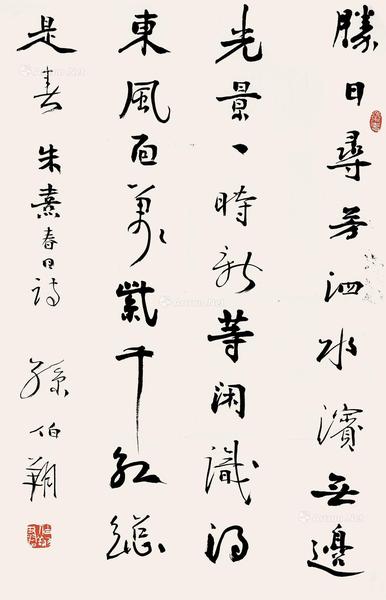 勝日尋芳泗水濱無邊
光景一時新等闲識得
東風面萬紫千紅總
是春 朱熹春日詩 孫伯翔